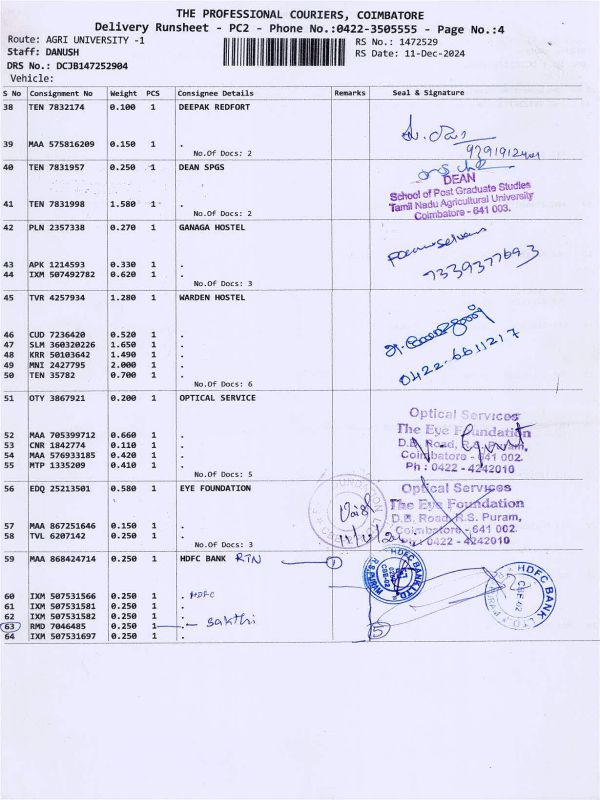 THE PROFESSIONAL COURIERS, COIMBATORE
Delivery Runsheet - PC2 - Phone No.:0422-3505555 - Page No.:4
Route: AGRI UNIVERSITY -1
RS No.: 1472529
Staff: DANUSH
RS Date: 11-Dec-2024
DRS No.: DCJB147252904
Vehicle:
S No Consignment No Weight PCS Consignee Details Remarks Seal & Signature
38 TEN 7832174 0.100 1 DEEPAK REDFORT
39 MAA 575816209 0.150 1 .
No.Of Docs: 2
40 TEN 7831957 0.250 1 DEAN SPGS
DEAN
School of Post Graduate Studies
Tamil Nadu Agricultural University
Coimbatore - 641 003.
41 TEN 7831998 1.580 1 .
No.Of Docs: 2
42 PLN 2357338 0.270 1 GANAGA HOSTEL
43 APK 1214593 0.330 1 .
44 IXM 507492782 0.620 1 .
No.Of Docs: 3
7339377693
45 TVR 4257934 1.280 1 WARDEN HOSTEL
46 CUD 7236420 0.520 1 .
47 SLM 360320226 1.650 1 .
48 KRR 50103642 1.490 1 .
49 MNI 2427795 2.000 1 .
50 TEN 35782 0.700 1 .
No.Of Docs: 6
0422-6611217
51 OTY 3867921 0.200 1 OPTICAL SERVICE
52 MAA 705399712 0.660 1 .
53 CNR 1842774 0.110 1 .
54 MAA 576933185 0.420 1 .
55 MTP 1335209 0.410 1 .
No.Of Docs: 5
Optical Services
The Eye Foundation
D.B. Road, R.S. Puram,
Coimbatore - 641 002.
Ph : 0422 - 4242010
56 EDQ 25213501 0.580 1 EYE FOUNDATION
57 MAA 867251646 0.150 1 .
58 TVL 6207142 0.250 1 .
No.Of Docs: 3
Optical Services
The Eye Foundation
D.B. Road, R.S. Puram,
0422 - 4242010
59 MAA 868424714 0.250 1 HDFC BANK RTN
1
HDFC BANK LTD
HDFC BANK LTD
60 IXM 507531566 0.250 1 . HDFC
61 IXM 507531581 0.250 1 .
62 IXM 507531582 0.250 1 .
63 RMD 7046485 0.250 1 . Sakthi
64 IXM 507531697 0.250 1 .
5